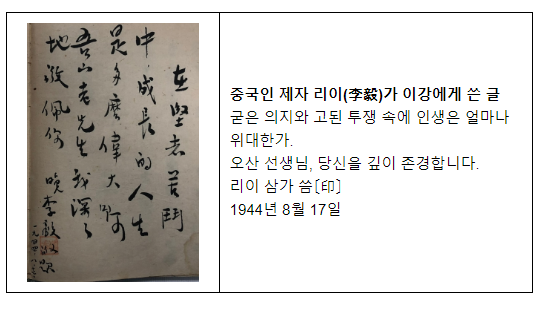 在堅志苦鬥
中成長的人生
是多麼偉大啊
吾山老先生我深々
地敬佩你 晚李毅
중국인 제자 리이(李毅)가 이강에게 쓴 글
굳은 의지와 고된 투쟁 속에 인생은 얼마나
위대한가.
오산 선생님, 당신을 깊이 존경합니다.
리이 삼가 씀〔印〕
1944년 8월 17일